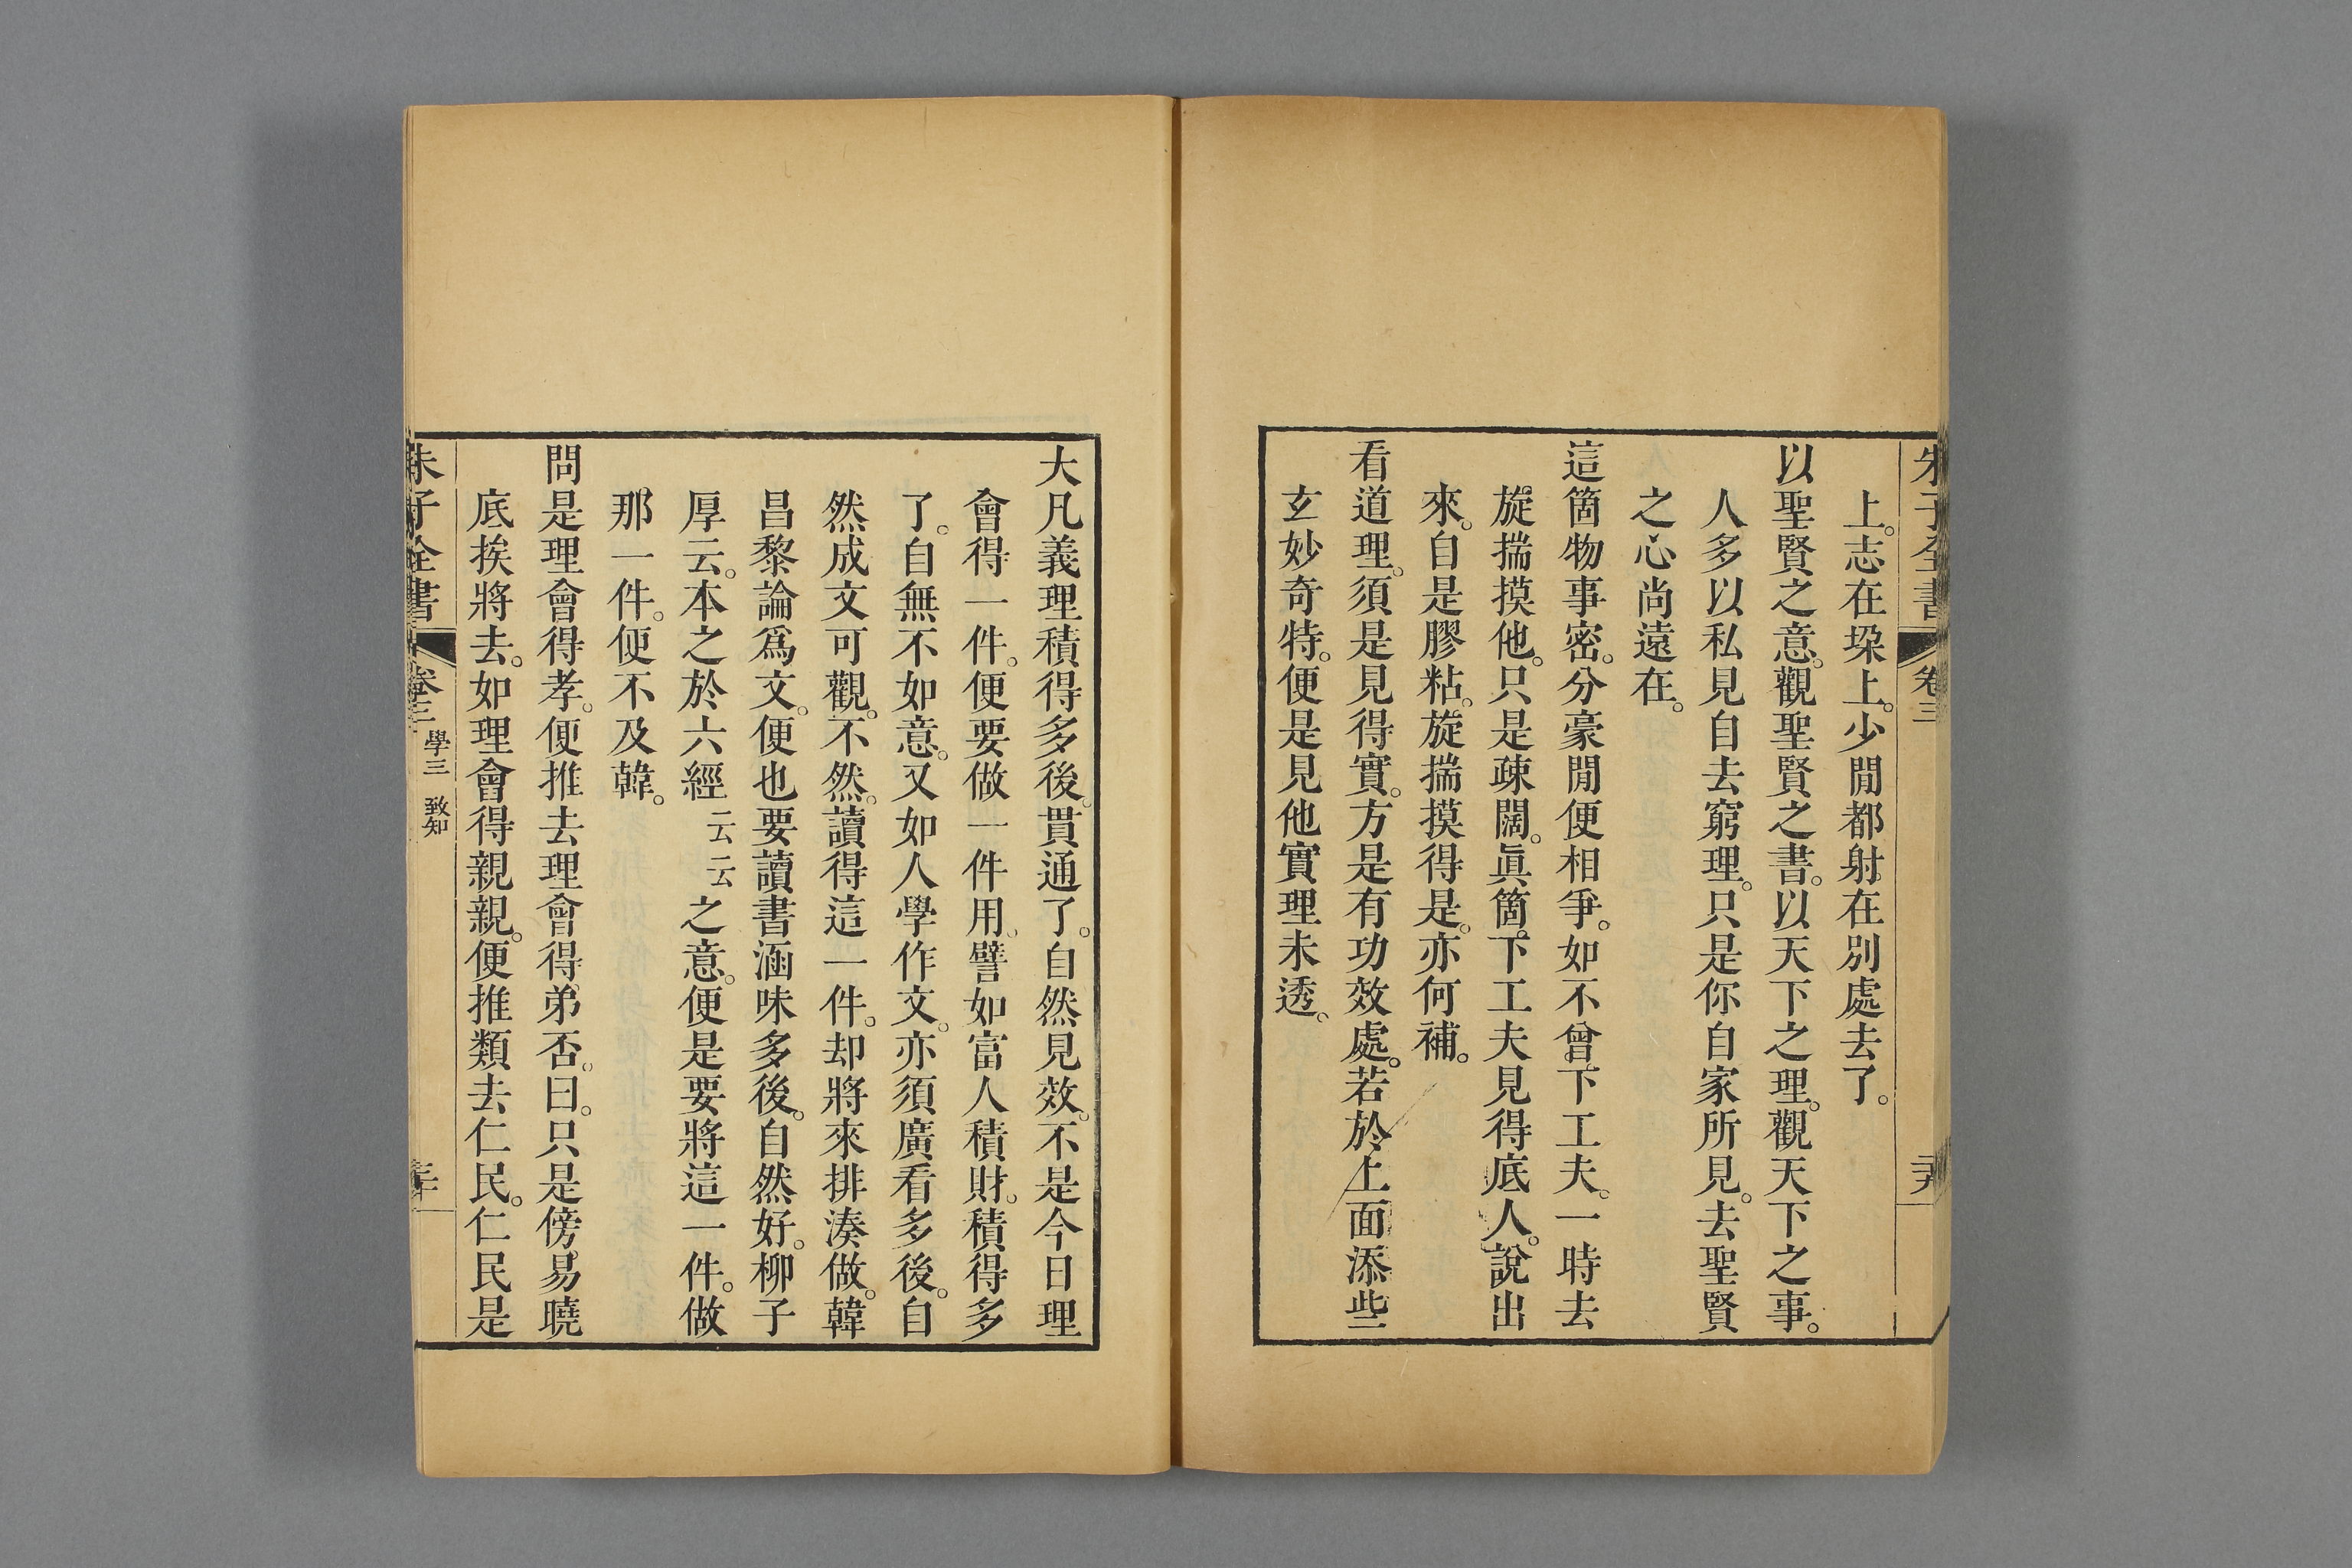 朱子全書 卷三 二十九
上。志在垜上。少閒都射在別處去了。
以聖賢之意。觀聖賢之書。以天下之理。觀天下之事。
人多以私見自去窮理。只是你自家所見。去聖賢
之心尚遠在。
這箇物事密。分豪閒便相爭。如不曾下工夫。一時去
旋揣摸他。只是疎闊。眞箇下工夫見得底人。說出
來。自是膠粘。旋揣摸得是。亦何補。
看道理。須是見得實。方是有功效處。若於上面添些
玄妙奇特。便是見他實理未透。
大凡義理積得多後。貫通了。自然見效。不是今日理
會得一件。便要做一件用。譬如富人積財。積得多
了。自無不如意。又如人學作文。亦須廣看多後。自
然成文可觀。不然。讀得這一件。却將來排湊做。韓
昌黎論爲文。便也要讀書涵味多後。自然好。柳子
厚云。本之於六經云云之意。便是要將這一件。做
那一件。便不及韓。
問是理會得孝。便推去理會得弟否。曰。只是傍易曉
底挨將去。如理會得親親。便推類去仁民。仁民是
朱子全書 卷三 學三 致知 三十